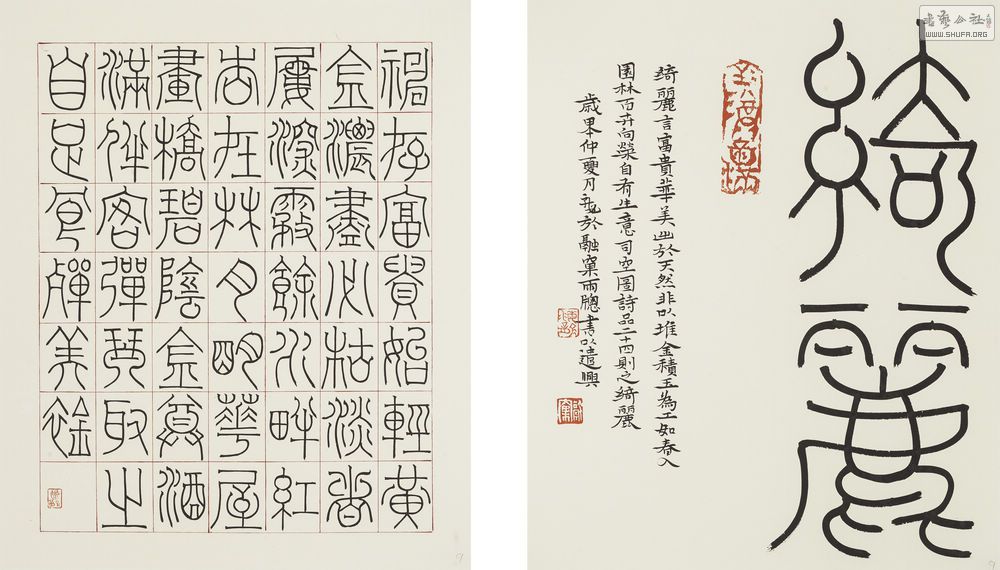 书艺公社
WWW.SHUFA.ORG
綺麗
綺麗言富貴華美出於天然非以堆金積玉為工如春入
園林百卉向榮自有生意司空圖詩品二十四則之綺麗
歲仲夏月於融窠雨牕書以遣興
神存富貴始輕黃
金濃盡必枯淡者
屢深霧餘水畔紅
杏在林月明華屋
畫橋碧陰金尊酒
滿伴客彈琴取之
自足良殫美襟